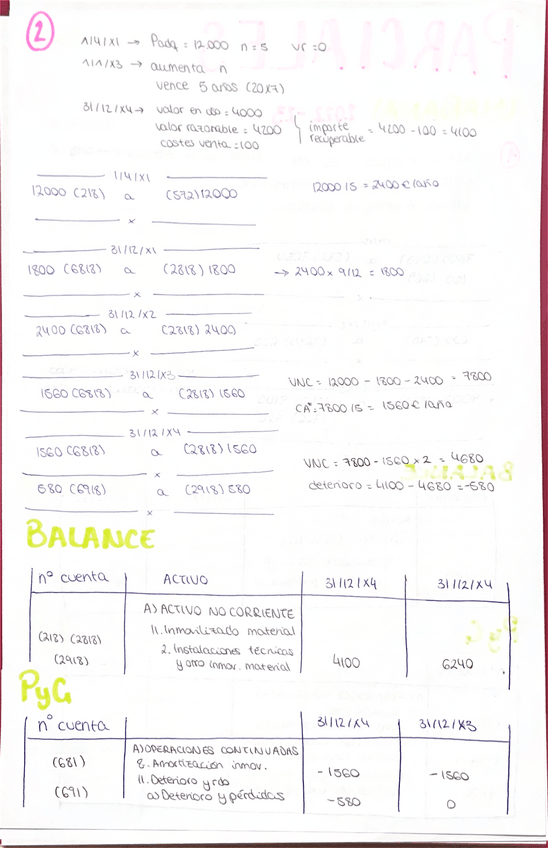 2
1/4/X1 → Padq = 12.000 n = 5 vr = 0
1/1/X3 → aumenta n
vence 5 años (20X7)
31/12/X4 → valor en uso = 4000
valor razonable = 4200
costes venta = 100
importe recuperable = 4200 - 100 = 4100
1/4/X1
12000 (218) a (572) 12000
12000/5 = 2400 €/año
x
31/12/X1
1800 (6818) a (2818) 1800
→ 2400 x 9/12 = 1800
x
31/12/X2
2400 (6818) a (2818) 2400
x
31/12/X3
1560 (6818) a (2818) 1560
VNC = 12000 - 1800 - 2400 = 7800
CA* = 7800/5 = 1560 €/año
x
31/12/X4
1560 (6818) a (2818) 1560
VNC = 7800 - 1560 x 2 = 4680
x
580 (6918) a (2918) 580
deterioro = 4100 - 4680 = -580
x
BALANCE
nº cuenta ACTIVO 31/12/X4 31/12/X4
A) ACTIVO NO CORRIENTE
(218) (2818) II. Inmovilizado material
(2918) 2. Instalaciones técnicas
y otro inmov. material 4100 6240
PyG
nº cuenta 31/12/X4 31/12/X3
A) OPERACIONES CONTINUADAS
(681) 8. Amortización inmov. -1560 -1560
11. Deterioro y rdo
(691) a) Deterioro y pérdidas -580 0